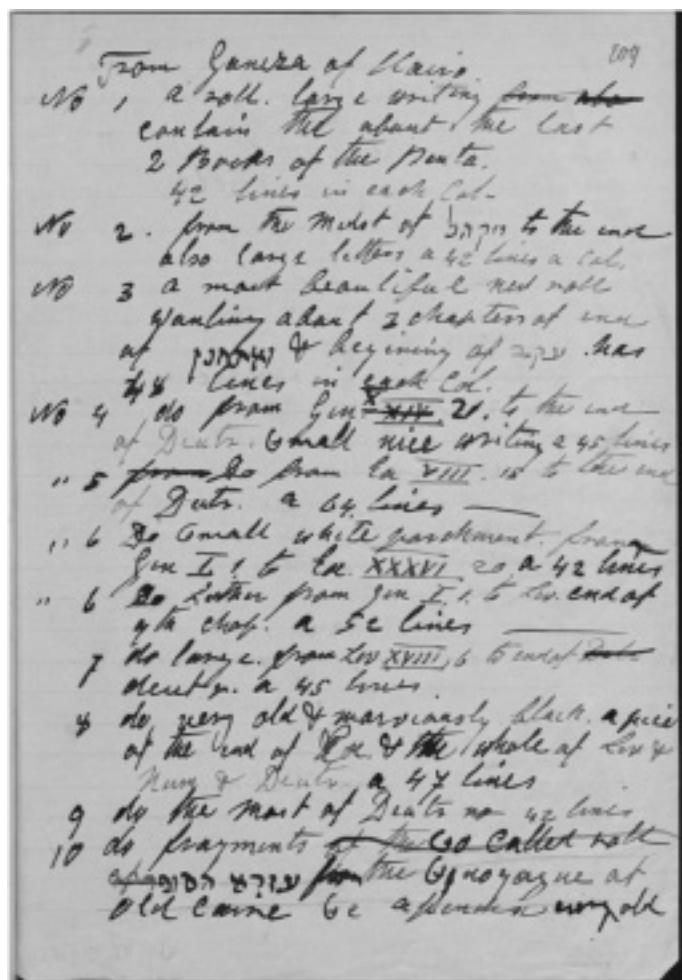 109
From Geneza of Cairo
No 1 a roll. large writing from
contain the about the last
2 Books of the Penta.
42 lines in each Col.
No 2. from the midst of ויקהל to the end
also large letters a 42 lines a Col.
No 3 a most beautiful red roll
Wanting about 2 chapters of end
of ואתחנן & begining of עקב has
48 lines in each Col.
No 4 do from Gen XIV 21. to the end
of Deutr. Small nice writing a 45 lines
" 5 from Do from Ex VIII. 15 to the end
of Dutr. a 64 lines
" 6 Do Small white parchment. from
Gen I. 1. to Ex. XXXVI 20 a 42 lines
" 6 Do Lether from Gen I. 1. to Lev. end of
9th chap. a 52 lines
7 do large. from Lev XVIII, 6 to end of
deutr. a 45 lines
8 do very old & black. a
of the end of Ex. & the whole of Lev &
Num & Deutr. a 47 lines
9 do the most of Deutr 42 lines
10 do fragments of the so called roll
עזרא הסופר from the Synogogue at
Old old